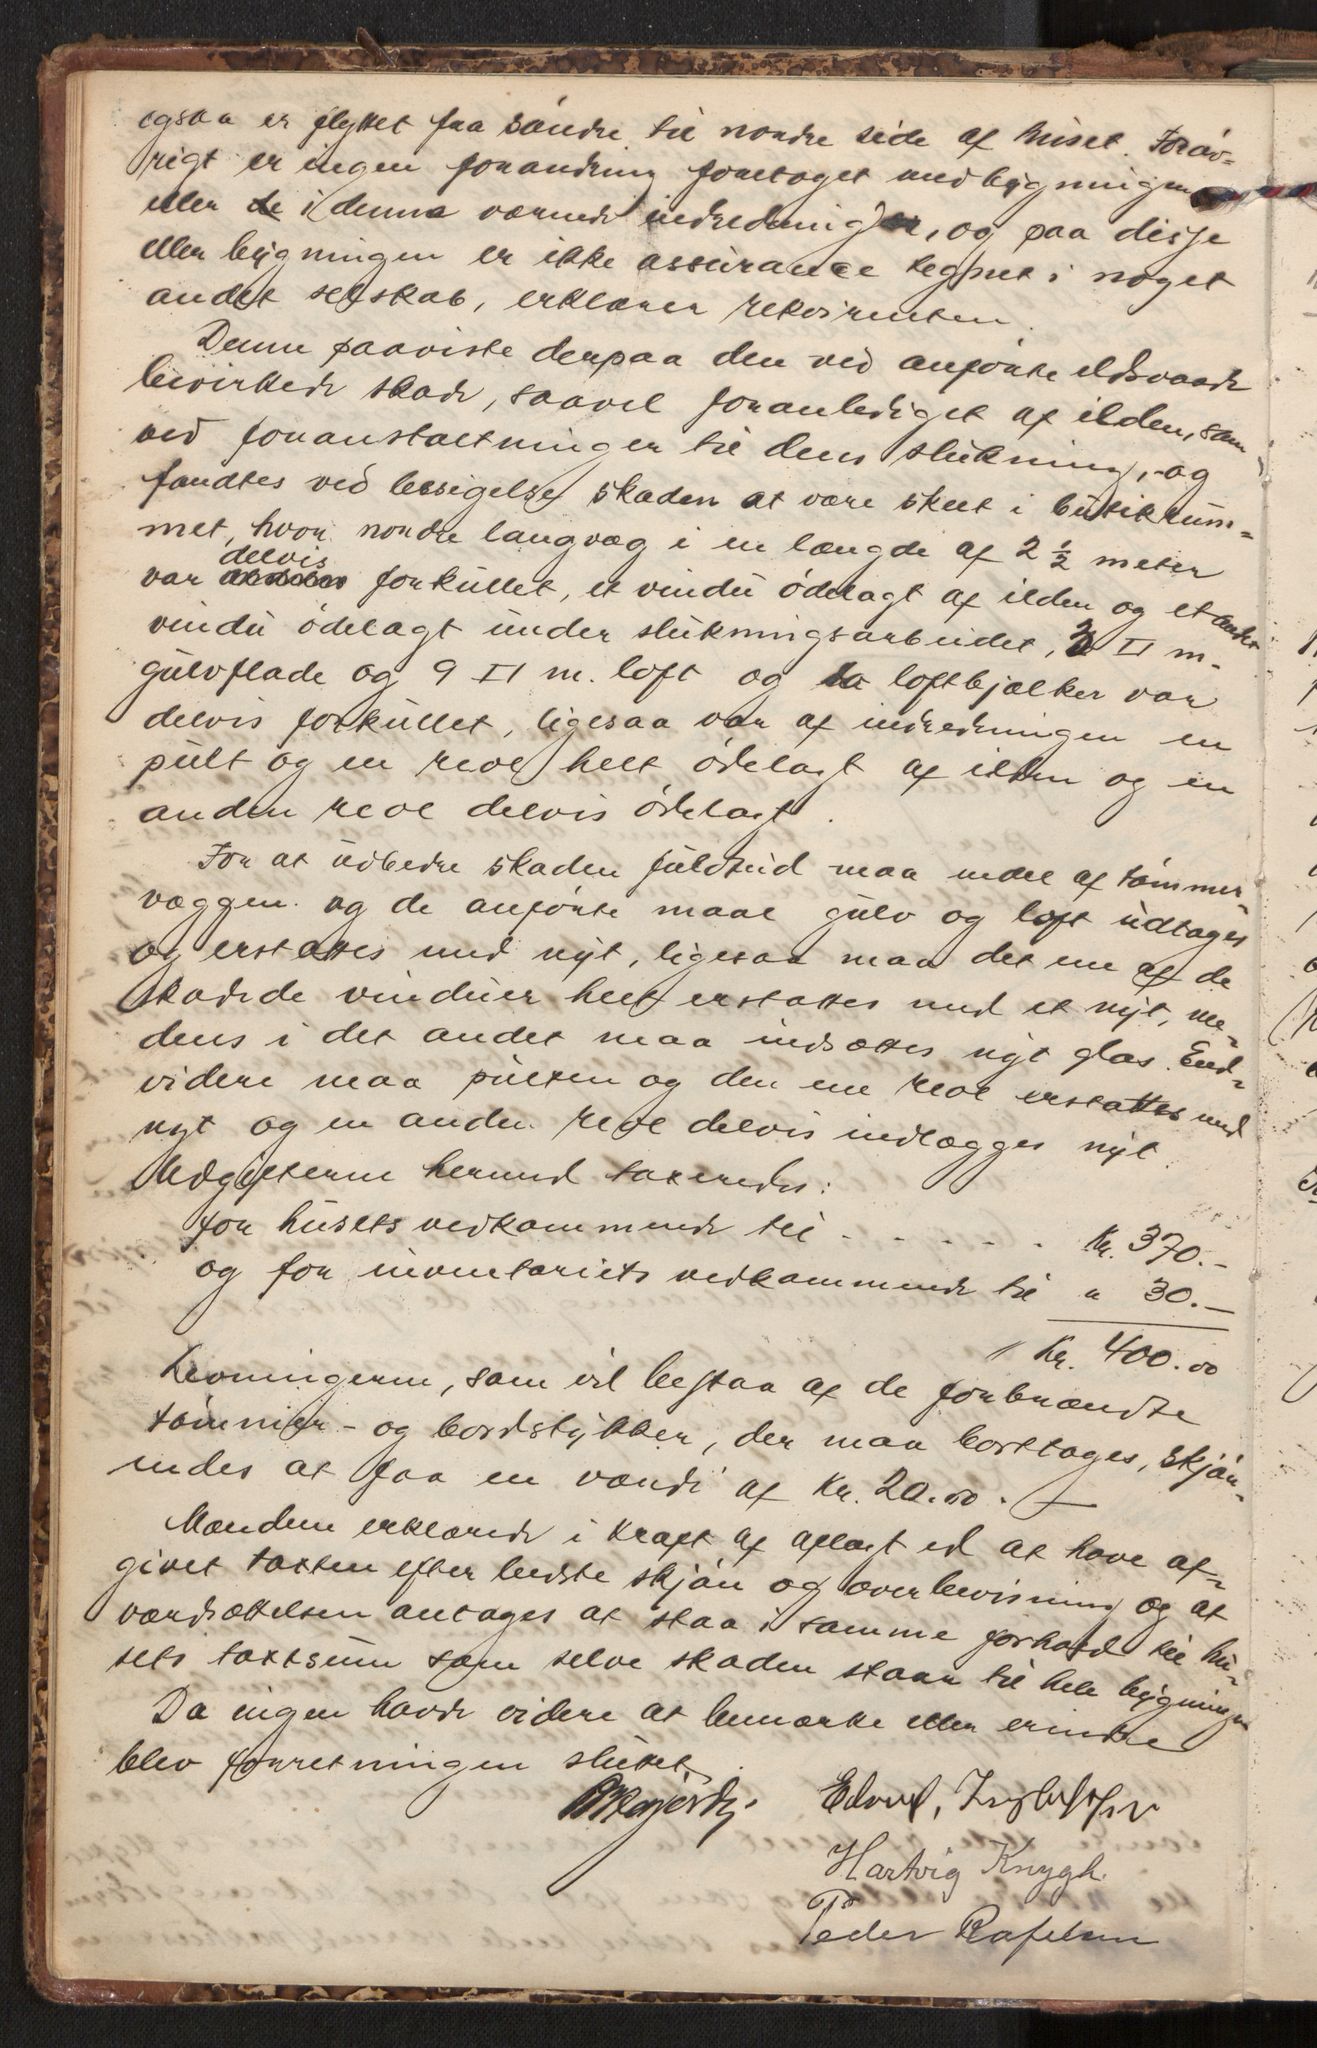 ogsaa er flyttet fra søndre til nordre side af huset. Forøv-
rigt er ingen forandring foretaget med bygningen
eller de i denne værende indredninger, og paa disse
eller bygningen er ikke assurance tegnet i noget
andet selskab, erklærer rekvirenten.
Denne paaviste derpaa den ved anførte ildsvaade
bevirkede skade, saavel foranlediget af ilden, som
ved foranstaltninger til dens slukning, og
fandtes ved besigelse skaden at være skeet i butikrum-
met, hvor nordre langvæg i en længde af 2 ½ meter
delvis
var forkullet, et vindu ødelagt af ilden og et andet
vindu ødelagt under slukningsarbeidet, 2 □ m.
gulvflade og 9 □ m. loft og to loftbjælker var
delvis forkullet, ligesaa var af indredningen en
pult og en reol helt ødelagt af ilden og en
anden reol delvis ødelagt.
For at udbedre skaden fuldtud maa endel af tømmer-
væggen og de anførte maal gulv og loft udtages
og erstattes med nyt, ligesaa maa det ene af de
skadede vinduer helt erstattes med et nyt, me-
dens i det andet maa indsættes nyt glas. End-
videre maa pulten og den ene reol erstattes med
nyt og en anden reol delvis indlægges nyt.
Udgifterne hermed taxeredes:
for husets vedkommende til - - - - - - Kr. 370.-
og for inventariets vedkommende til " 30.-
Kr. 400.00
Levningerne, som vil bestaa af de forbrændte
tømmer- og bordstykker, der maa borttages, skjøn-
nedes at faa en værdi af Kr. 20.00. —
Mændene erklærede i kraft af aflagt ed at have af-
givet taxten efter bedste skjøn og overbevisning og at
værdsættelsen antages at staa i samme forhold til hu-
sets taxtsum som selve skaden staar til hele bygningen
Da ingen havde videre at bemærke eller erindre
blev forretningen sluttet.
Edvard
Hartvig Krygh.
Peder Rafelsen